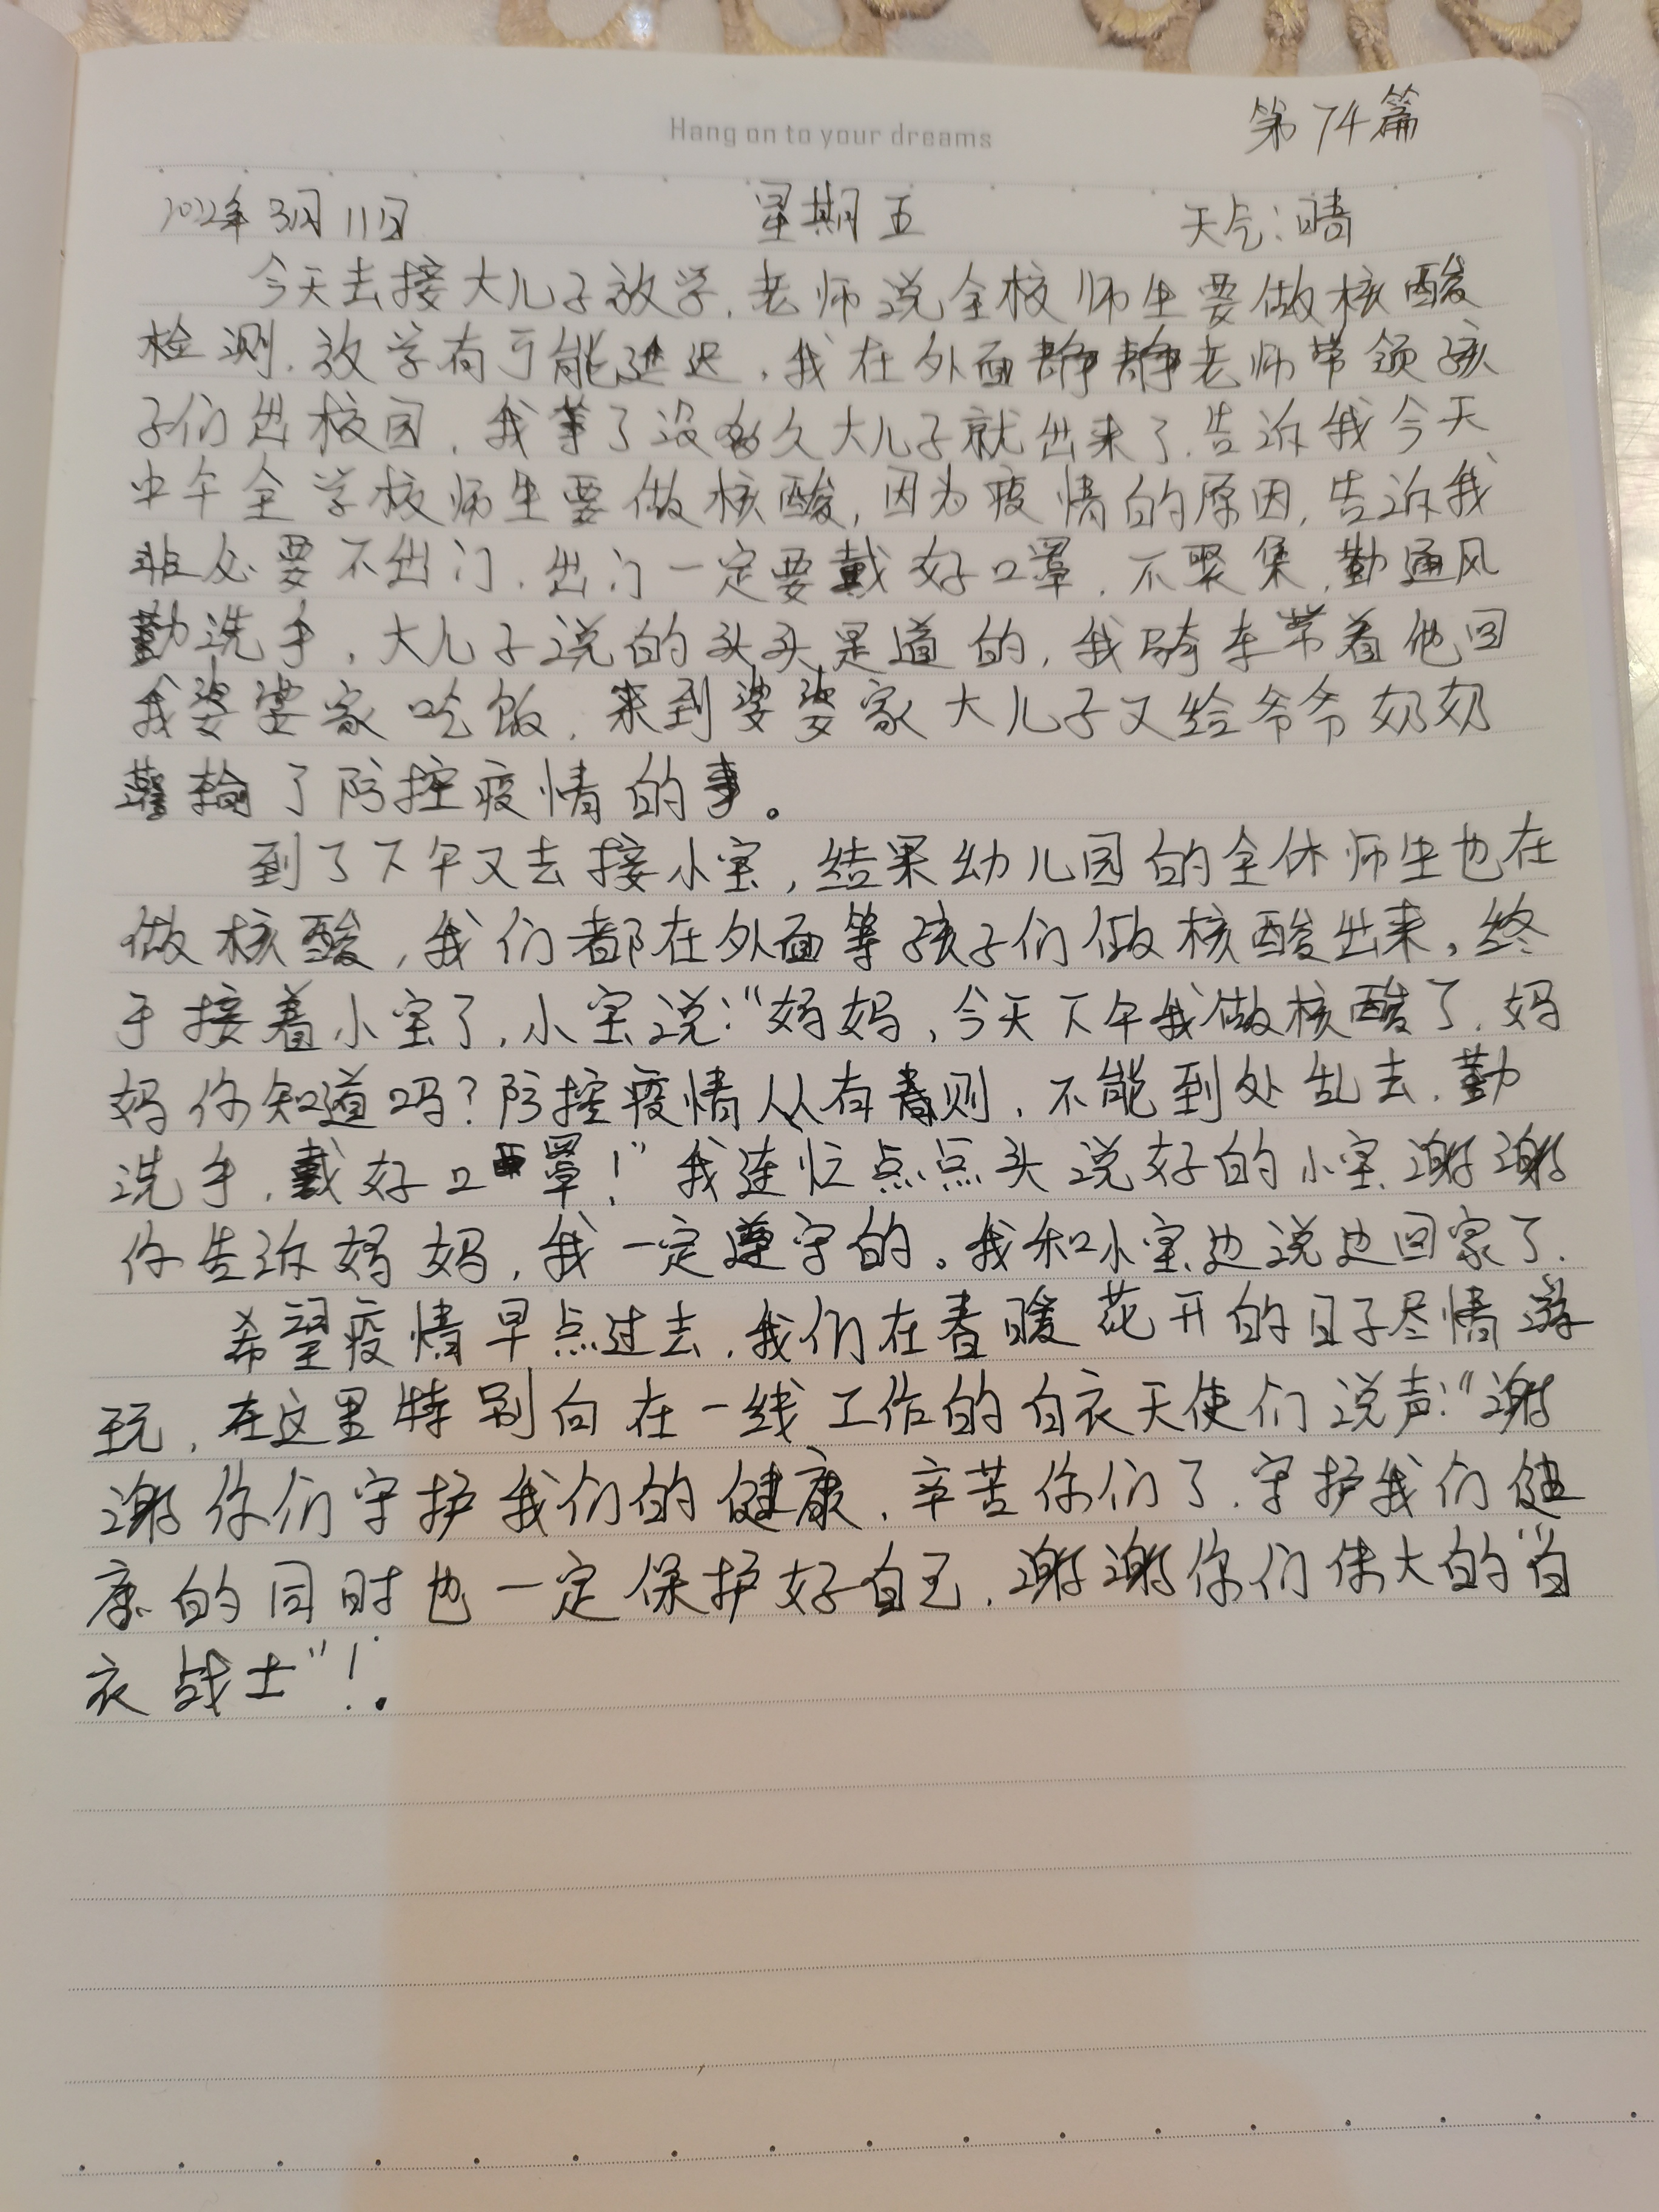 Hang on to your dreams
第74篇
2022年3月11日 星期五 天气:晴
今天去接大儿子放学,老师说全校师生要做核酸
检测,放学有可能延迟,我在外面静静老师带领孩
子们出校园,我等了没多久大儿子就出来了,告诉我今天
中午全学校师生要做核酸,因为疫情的原因,告诉我
非必要不出门,出门一定要戴好口罩,不聚集,勤通风
勤洗手,大儿子说的头头是道的,我骑车带着他回
我婆婆家吃饭,来到婆婆家大儿子又给爷爷奶奶
了防控疫情的事。
到了下午又去接小宝,结果幼儿园的全体师生也在
做核酸,我们都在外面等孩子们做核酸出来,终
于接着小宝了,小宝说:“妈妈,今天下午我做核酸了,妈
妈你知道吗?防控疫情人人有责则,不能到处乱去,勤
洗手,戴好口罩!”我连忙点点头说好的小宝,谢谢
你告诉妈妈,我一定遵守的。我和小宝边说边回家了.
希望疫情早点过去,我们在春暖花开的日子尽情游
玩,在这里特别向在一线工作的白衣天使们说声:“谢
谢你们守护我们的健康,辛苦你们了,守护我们健
康的同时也一定保护好自己,谢谢你们伟大的“白
衣战士”!.